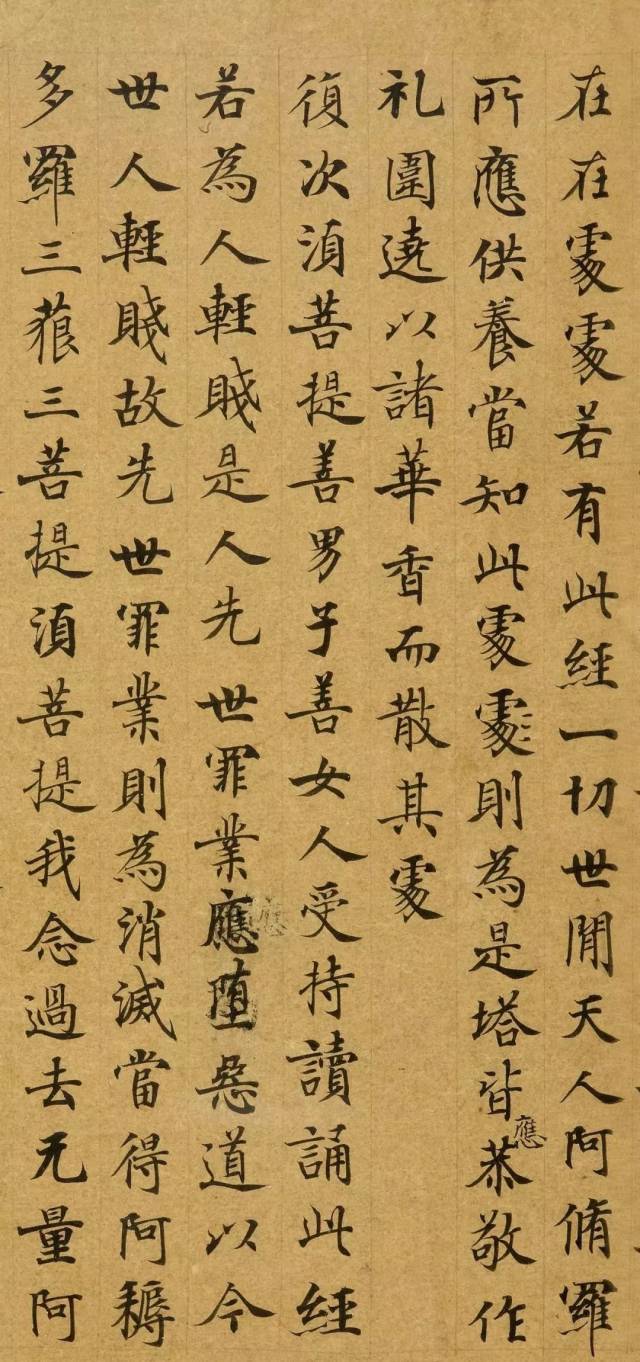 在在處處若有此經一切世間天人阿脩羅
所應供養當知此處處則為是塔皆應恭敬作
礼圍遶以諸華香而散其處
復次湏菩提善男子善女人受持讀誦此經
若為人輕賤是人先世罪業應堕惡道以今
世人輕賤故先世罪業則為消滅當得阿耨
多羅三藐三菩提湏菩提我念過去无量阿